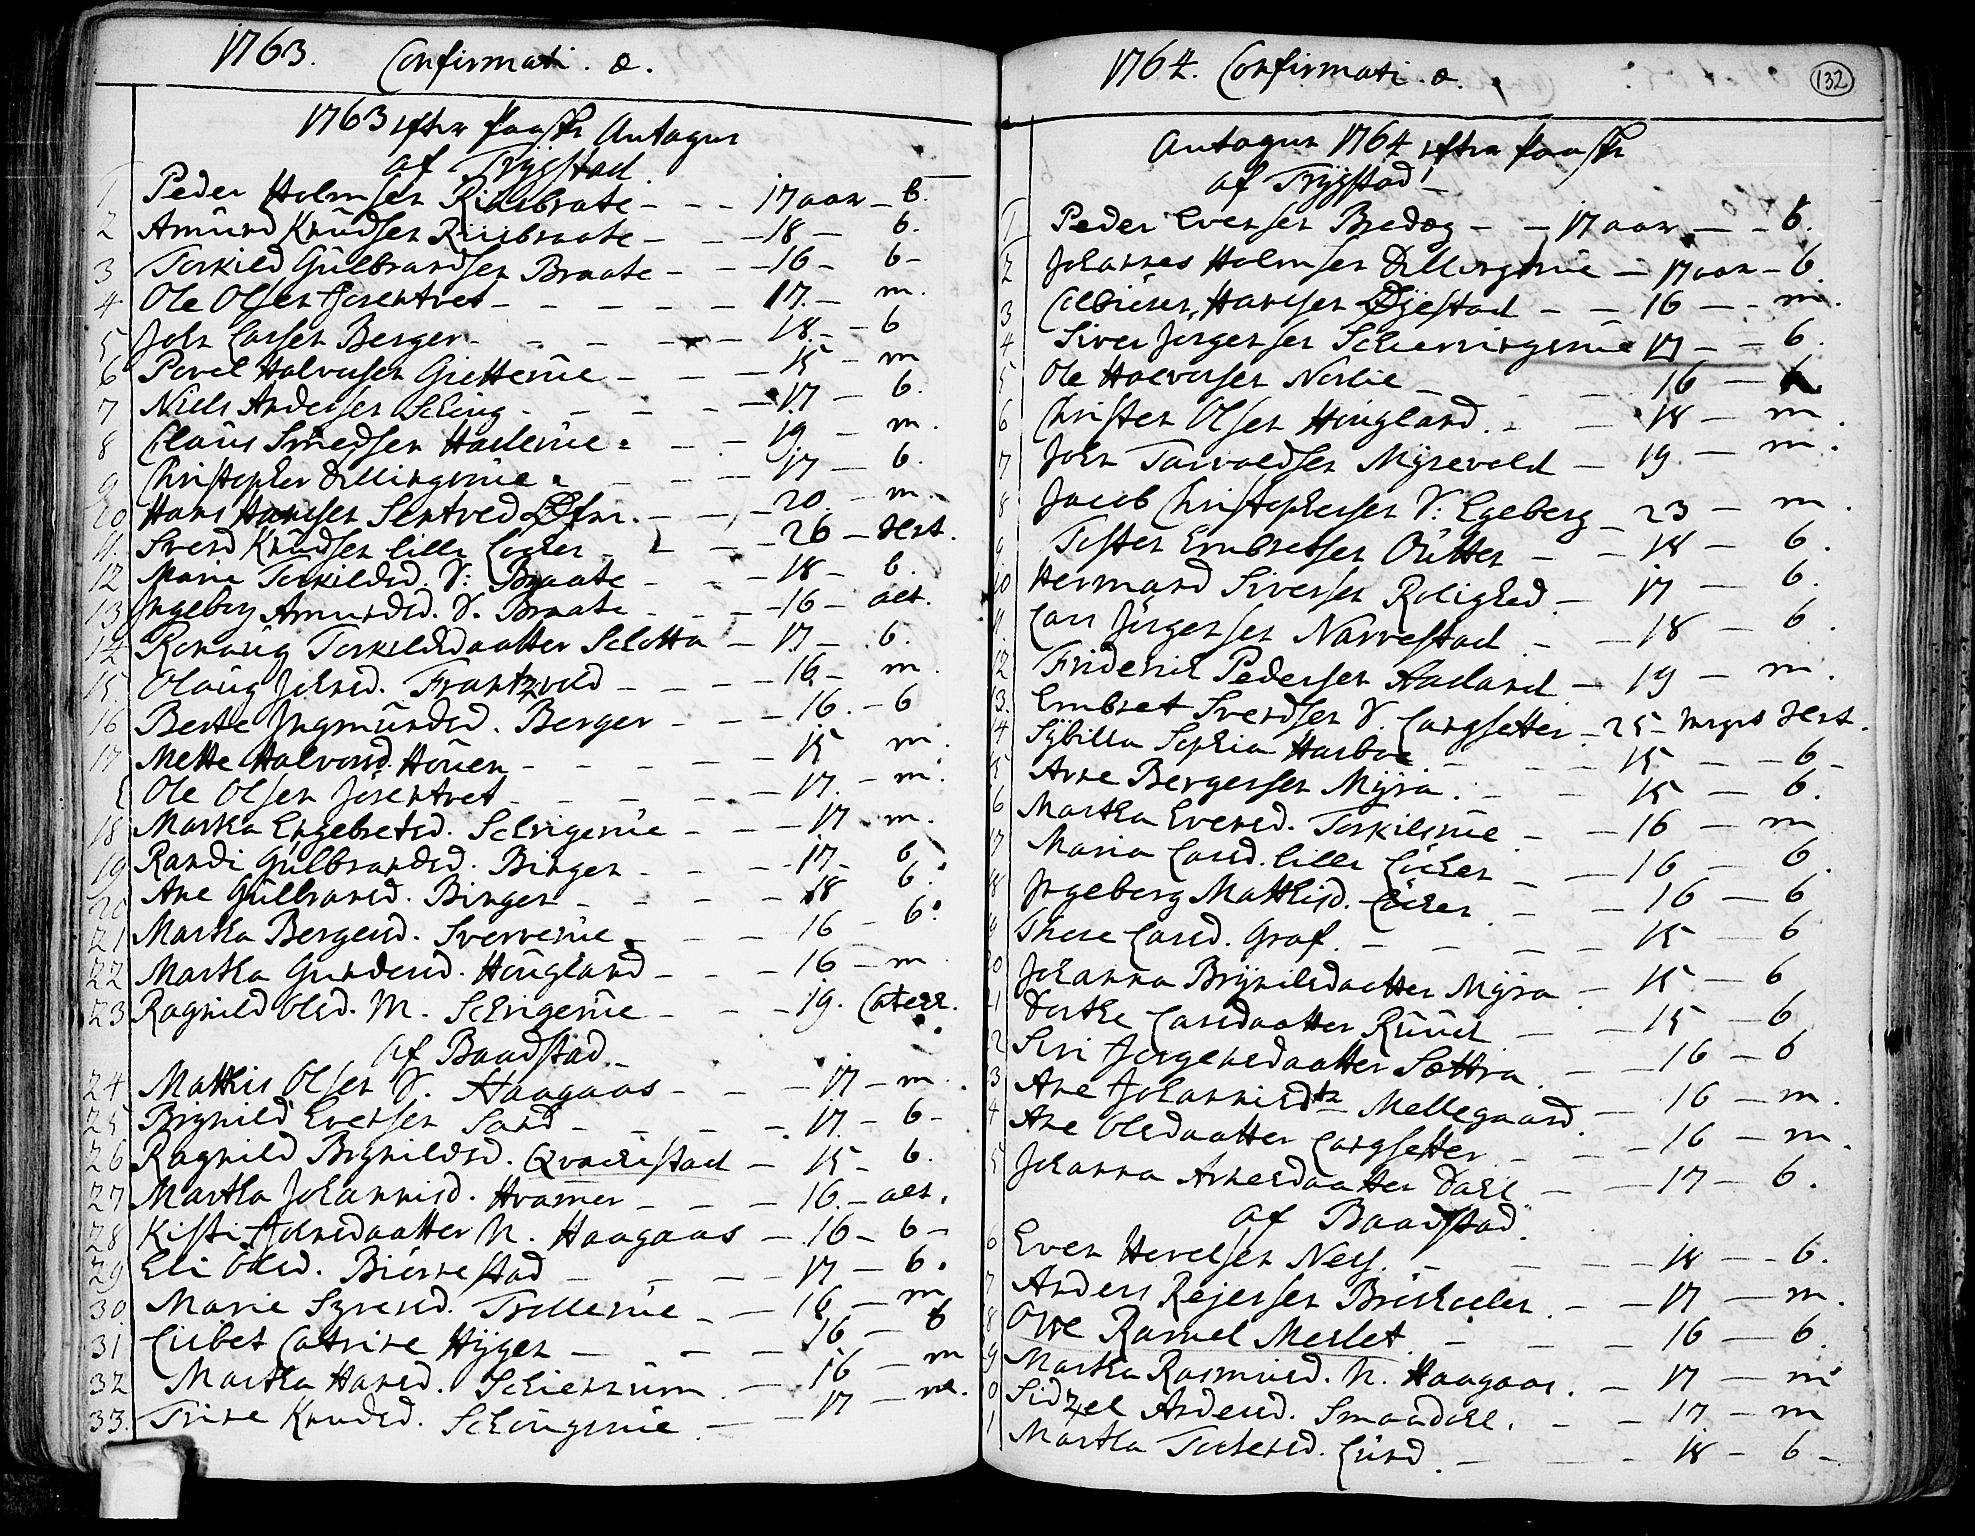 1763. Confirmati. æ.
1763 efter Paaske Antagne
af Trygstad.
1 Peder Holmsen Riisbraate - - - 17 aar - b.
2 Amund Knudsen Riisbraate - - - 18 - b.
3 Torkild Gulbrandsen Braate - - - 16 - b -
4 Ole Olsen Josentvet - - - - 17. - m.
5 John Larsen Berger - - - - 18. - b
6 Povel Halvorsen Gretterue - - - 15 - m
7 Niels Andersen Scling - - - - 17 - b.
8 Claus Smedsen Haslerue - - - 19 - m.
9 Christopher Dillingrue - - - 17 - b.
10 Hans Hansen Sentved Øfne. - - 20. - m.
11. Svend Knudsen lille Løcher - - - 26 - dest.
12 Marie Torkildsd. V: Braate - - - 18 - b.
13 Ingeborg Amundsd. V. Braate - - - 16 - alt.
14 Ronnug Torkildsdaatter Slotta - 17 - b.
15. Olaug Johnsd. Frantzvold - - - 16 - m.
16 Berte Ingmundsd. Berger - - - 16. - b
17 Mette Halvorsd. Houen - - - - 15 m.
Ole Olsen Josentvet - - - - 17. - m.
18 Martha Engebretsd. Schrigerue - - - 17 m.
19 Randi Gulbrandsd. Bingen - - - 17 - b
20 Ane Gulbransd. Bingen - - - - 18 b.
21 Martha Bergesd. Sververue - - - 16 - b.
22 Martha Gundersd. Hougland - - - 16 - m
23 Ragnild Olsd. M. Schrigerue - - - 19. Catech.
af Baadstad
24 Mathis Olsen V. Haagaas - - - 17 - m.
25 Brynild Evensen Sand - - - - 17. - b -
26 Ragnild Brynildsd. Qvachestad - 15 - b.
27 Martha Johannisd. Hvamer - - - 16. - alt.
28 Kisti Johnsdaatter N. Haagaas - 16 - b -
29 Eli Olsd. Biørnestad - - - 17 - b.
30. Marie Syversd. Trollerue - - 16 - m
31 Lisbet Catrine Hyger - - - 16 - b
32 Martha Hansd. Schiennum - 16 - m
33. Trine Knudsd. Schingrue - - 17 - m.
1764. Confirmati. æ. 132
Antagne 1764 efter Paaske
af Trygstad
1 Peder Evensen Bredæg - - 17 aar - - b.
2 Johannes Holmsen Dillingrue - 17 aar - b.
3 Hansen Øyestad - - 16 - - m.
4 Siver Jørgensen 17 - - b.
5 Ole Halvorsen Norlie - - - 16 -
6 Christen Olsen Hougland - - 18 - m.
7 John Tarvoldsen Myrevold - 19 - m.
8 Jacob Christophersen V: Egeberg - 23 - m.
9 Tosten Embretsen Outter - - 18 - b.
10 Hermand Siversen Rolighed - 17 - b.
11. Lars Jørgensen Narvestad - - 18 - b.
12 Friderich Pedersen Aaeland - 19 - m.
13. Embret Svendsen V. Langsetter - 25 - meget dest.
14 Sybilla Sophia Harboe - - - 15 - - b -
15 Arne Bergersen Myra. - - 15 - b.
16 Martha Evensd. Torkilsrue - - 16 - m
17 Maria Larsd. lille Løcher - - 16 - b.
18 Ingeborg Mathisd. Løcher - - 16 - b
19 Therse Larsd. Graf. - - - 15 - b
20 Johanna Brynildsdaatter Myra - 15 - b
21 Dorthe Larsdaatter Ruud - - 15 - b
22 Siri Jørgensdaatter Sættra - - 16 - b
23 Ane Johannisdtr Mellegaard - 16 - m.
24 Ane Olsdaatter Langsetter - - 16 - m.
25 Johanna Arnesdaatter Dahl - - 17 - b.
af Baadstad.
26 Even Hevelsen Ness. - - - 18 - - b.
27 Anders Rejersen - - 17 - m.
28 Owe Ramel Meslet. - - - 16 - b.
29 Martha Rasmusd. N. Haagaas. - 17 - m
30 Sidzel Andersd. Smaadahl. - - 17 - m
31 Martha Tostensd. Lund. - - - 18 - b -